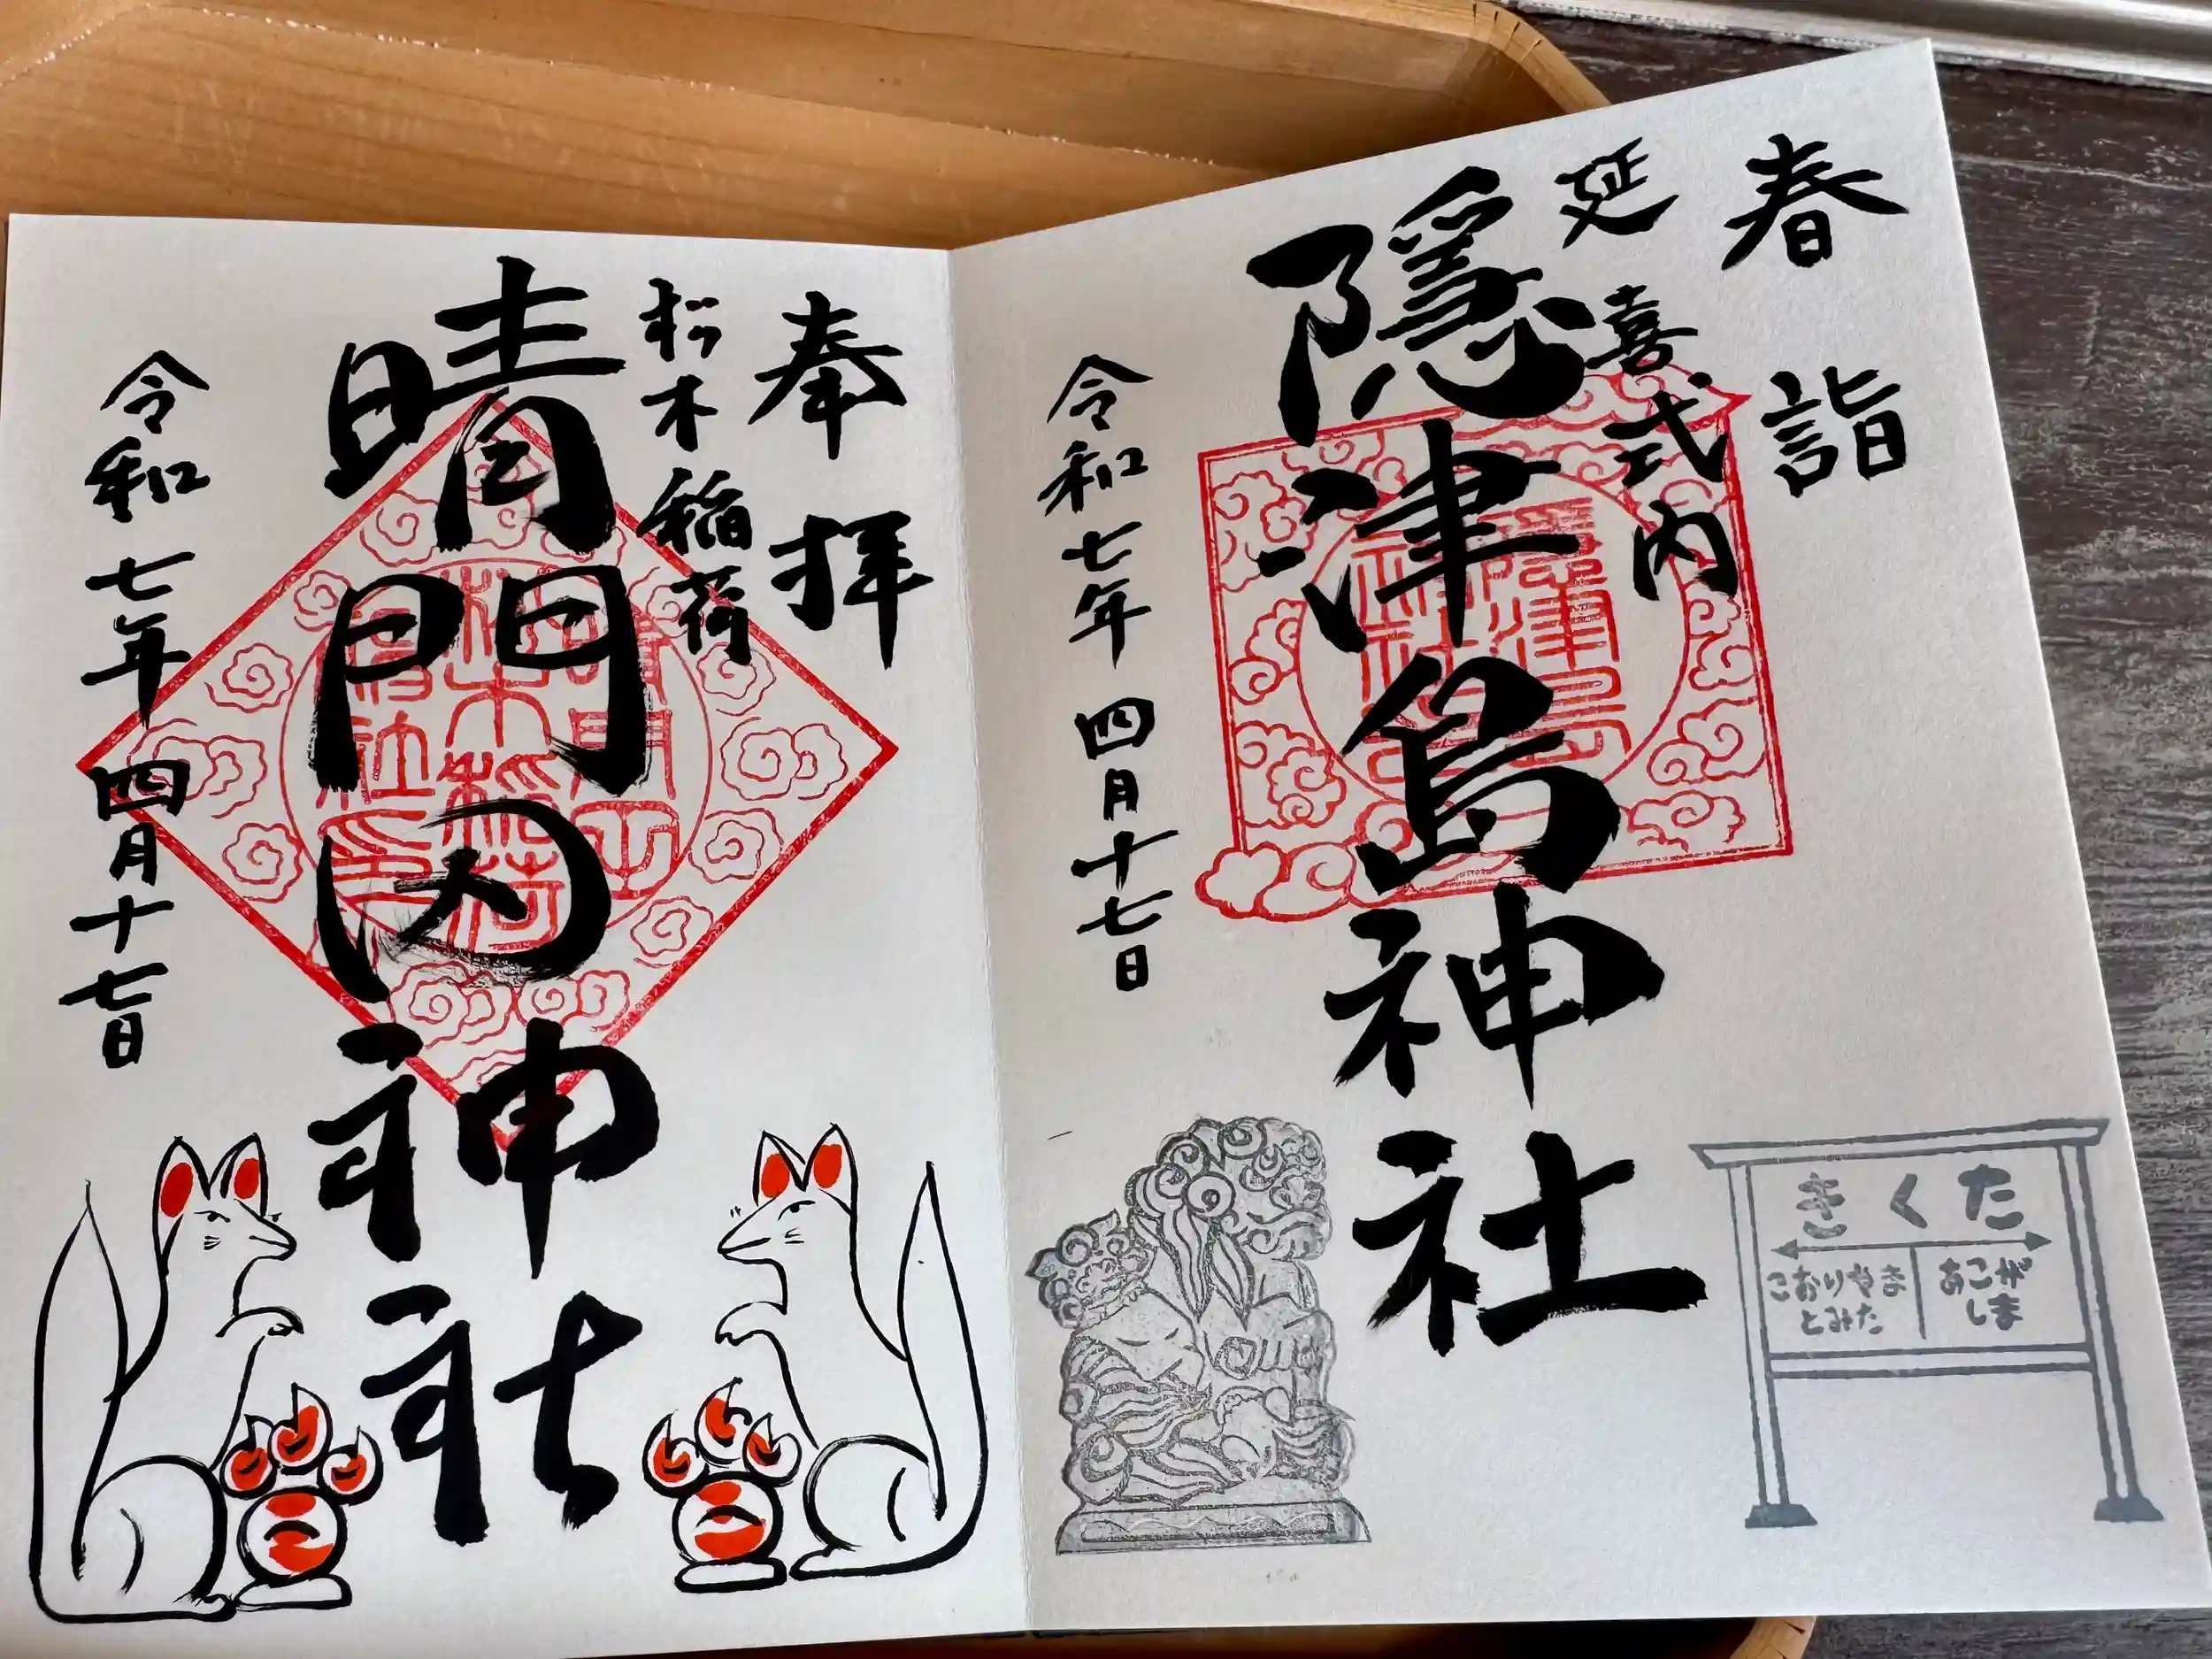 春詣
延喜式内
隠津島神社
令和七年四月十七日
きくた
こおりやま
とみた
あこが
しま
奉拝
松木稲荷
晴門田神社
令和七年四月十七日